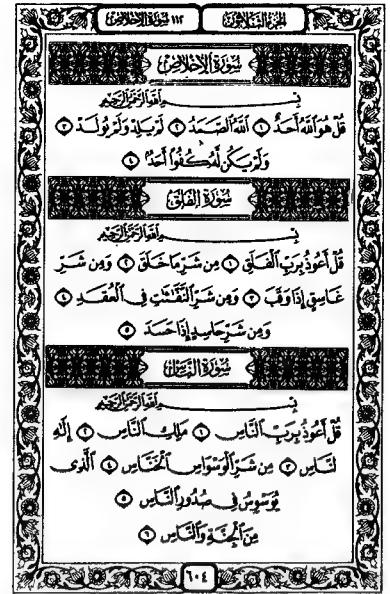 الجزء الثلاثون
١١٢ سورة الإخلاص
سُورَةُ الإِخْلَاصِ
بِسْمِ اللَّهِ الرَّحْمَٰنِ الرَّحِيمِ
قُلْ هُوَ ٱللَّهُ أَحَدٌ ١ ٱللَّهُ ٱلصَّمَدُ ٢ لَمْ يَلِدْ وَلَمْ يُولَدْ ٣
وَلَمْ يَكُن لَّهُۥ كُفُوًا أَحَدٌۢ ٤
سُورَةُ الفَلَقِ
بِسْمِ اللَّهِ الرَّحْمَٰنِ الرَّحِيمِ
قُلْ أَعُوذُ بِرَبِّ ٱلْفَلَقِ ١ مِن شَرِّ مَا خَلَقَ ٢ وَمِن شَرِّ
غَاسِقٍ إِذَا وَقَبَ ٣ وَمِن شَرِّ ٱلنَّفَّٰثَٰتِ فِى ٱلْعُقَدِ ٤
وَمِن شَرِّ حَاسِدٍ إِذَا حَسَدَ ٥
سُورَةُ النَّاسِ
بِسْمِ اللَّهِ الرَّحْمَٰنِ الرَّحِيمِ
قُلْ أَعُوذُ بِرَبِّ ٱلنَّاسِ ١ مَلِكِ ٱلنَّاسِ ٢ إِلَٰهِ
ٱلنَّاسِ ٣ مِن شَرِّ ٱلْوَسْوَاسِ ٱلْخَنَّاسِ ٤ ٱلَّذِى
يُوَسْوِسُ فِى صُدُورِ ٱلنَّاسِ ٥
مِنَ ٱلْجِنَّةِ وَٱلنَّاسِ ٦
٦٠٤